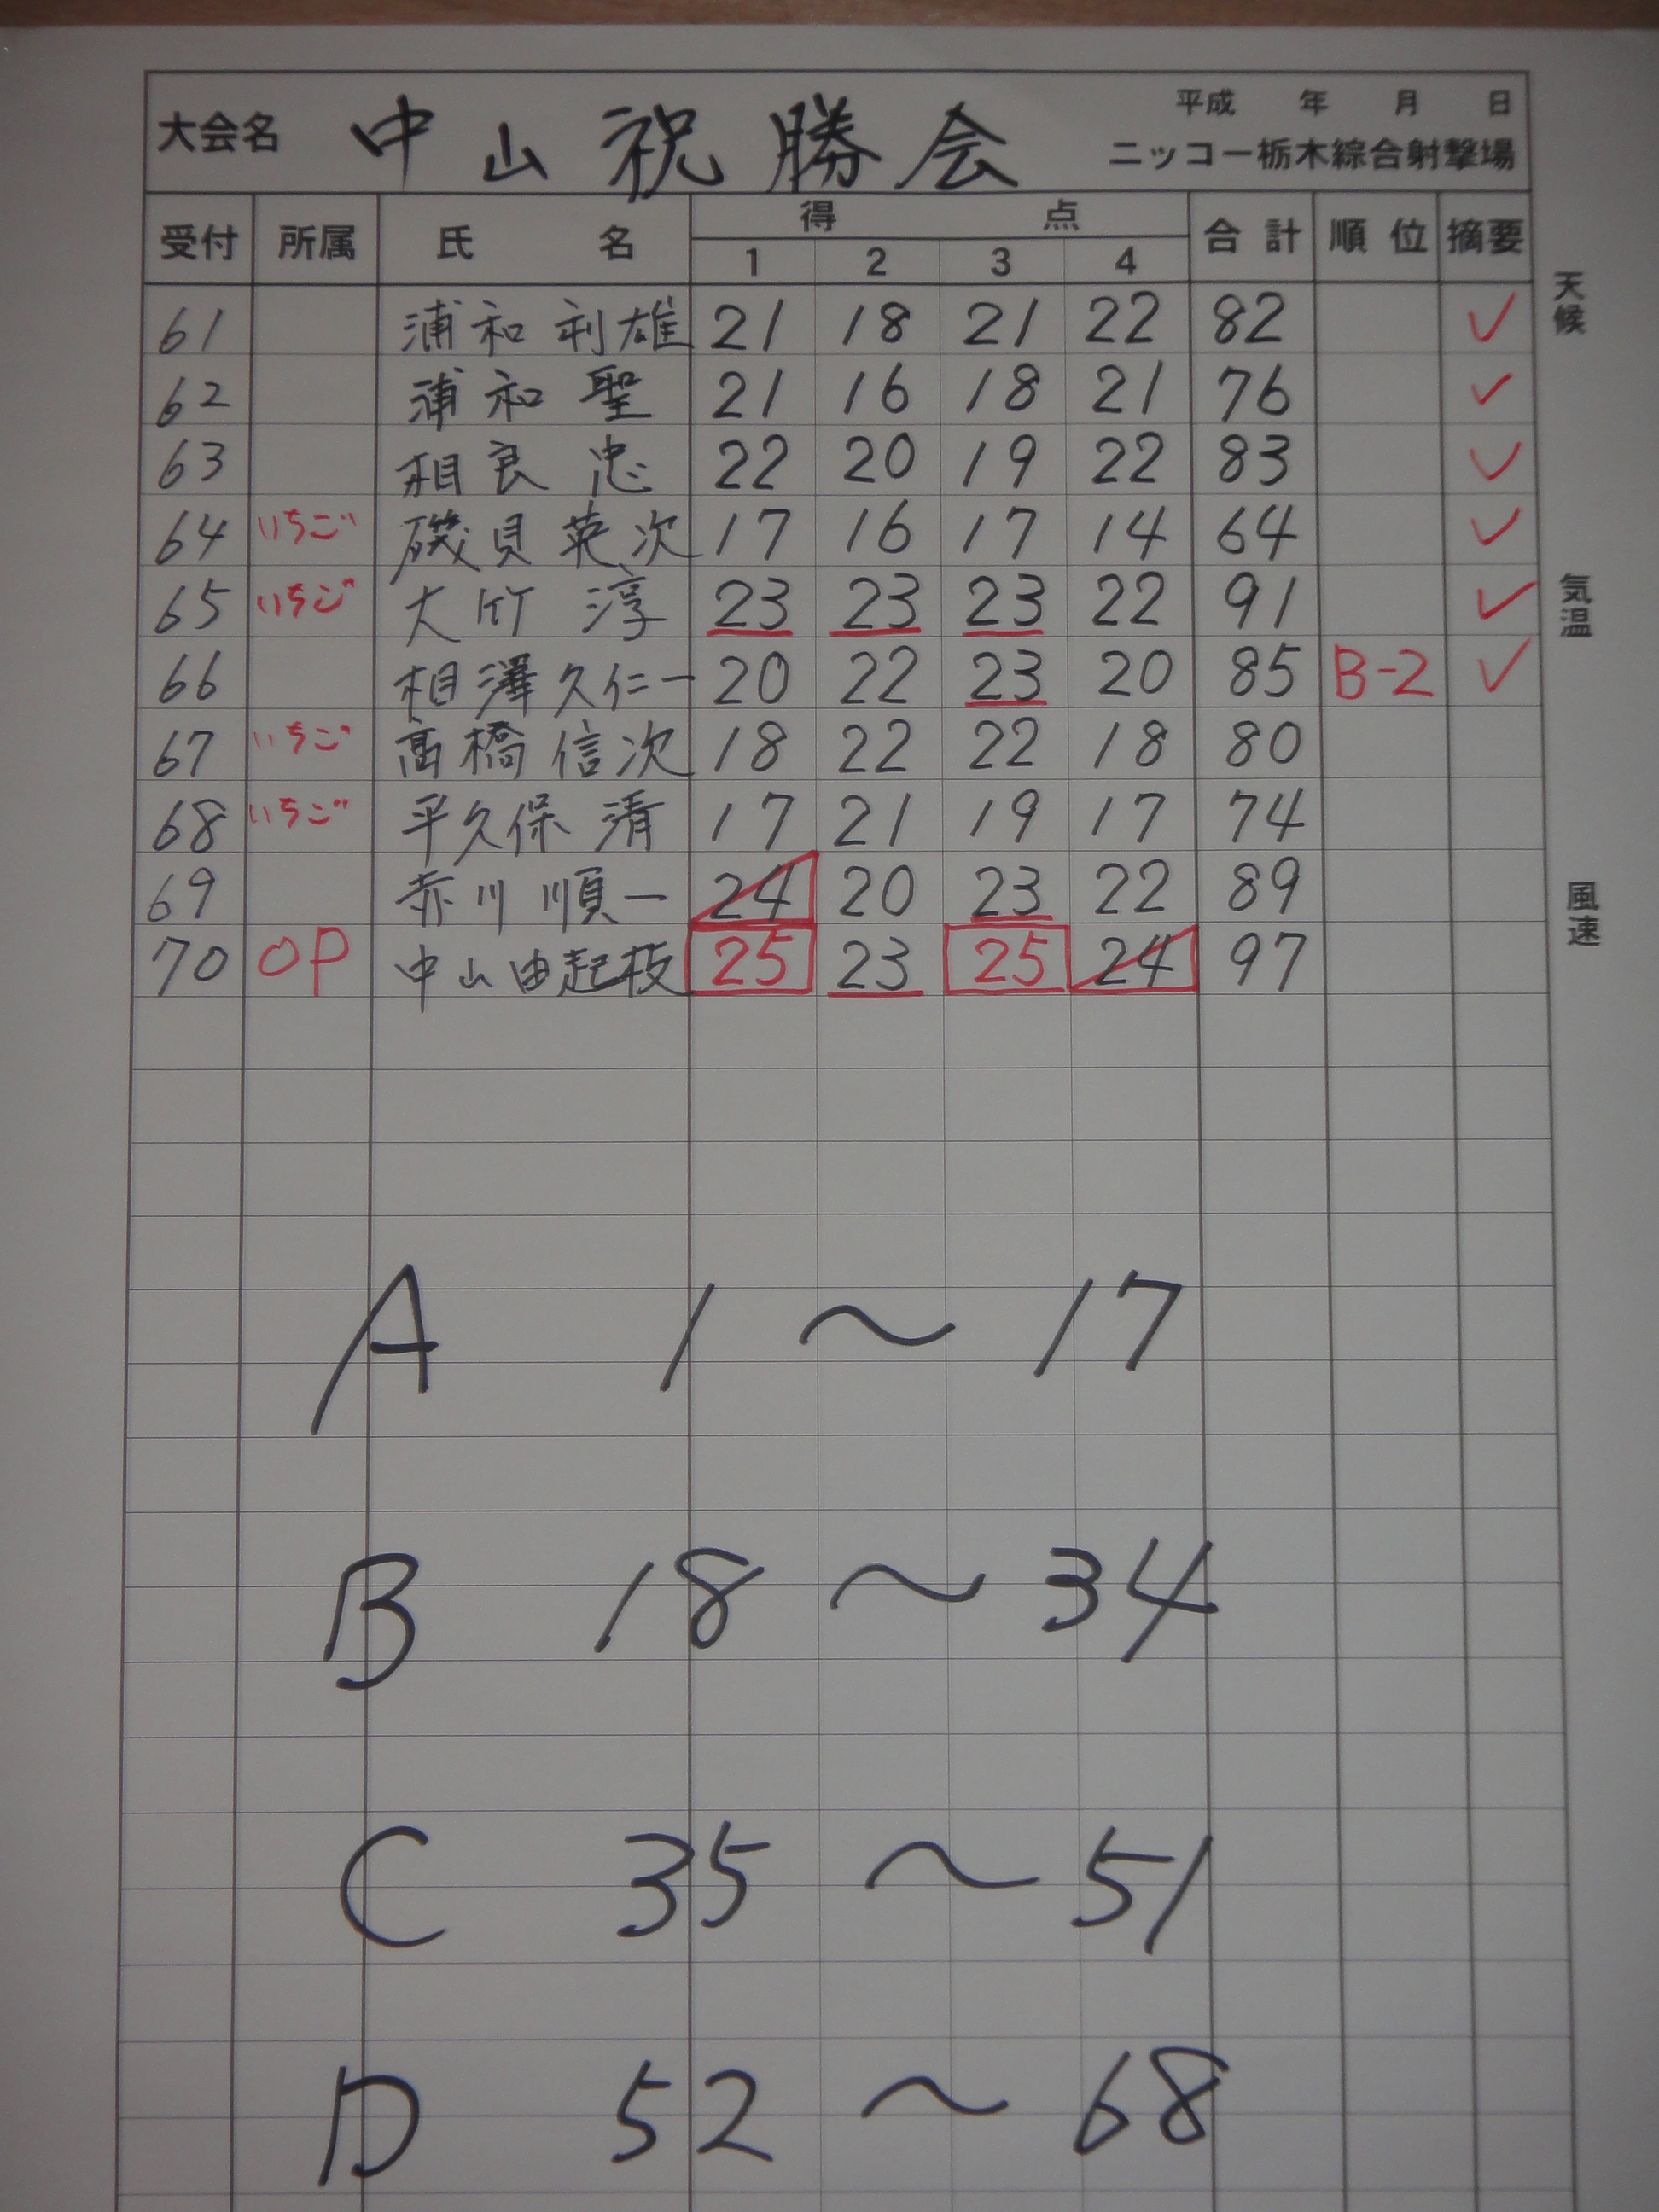 平成 年 月 日
大会名 中山祝勝会 ニッコー栃木綜合射撃場
受付 所属 氏名 得点 合計 順位 摘要
1 2 3 4
61 浦和利雄 21 18 21 22 82 ✓
62 浦和聖 21 16 18 21 76 ✓
63 相良忠 22 20 19 22 83 ✓
64 いちご 磯貝英次 17 16 17 14 64 ✓
65 いちご 大竹淳 23 23 23 22 91 ✓
66 相澤久仁一 20 22 23 20 85 B-2 ✓
67 いちご 髙橋信次 18 22 22 18 80
68 いちご 平久保清 17 21 19 17 74
69 赤川順一 24 20 23 22 89
70 OP 中山由起枝 25 23 25 24 97
天候
気温
風速
A 1〜17
B 18〜34
C 35〜51
D 52〜68